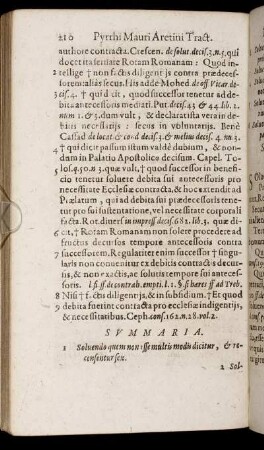 210 Pyrrhi Mauri Aretini Tract.
authore contracta. Crescen. de solut. decis. 3. n. 3. qui
docet ita sensisse Rotam Romanam: Quod in-
tellige † non factis diligentijs contra prædeces-
sorem: aliàs secus. His adde Mohed de off. Vicar. de-
cis. 4. † quid cit, quod successor tenetur ad de-
bita antecessoris mediati. Put. decis. 45 & 44. lib. 2.
num. 1. & 3. dum vult, & declarat ista vera in de-
bitis necessarijs: secus in voluntarijs. Bene
Cassad de locat. 2: 10. d. decis. 3. & melius decis. 4. nu. 2.
† qui dicit passum istum valdè dubium, & non-
dum in Palatio Apostolico decisum. Capel. To-
los. q. 50. n 3. quæ vult, † quod successor in benefi-
cio teneatur soluere debita sui antecessoris pro
necessitate Ecclesiæ contracta, & hoc extendit ad
Prælatum, qui ad debita sui prædecessoris tene-
tur pro sui sustentatione, vel necessitate corporali
facta. Rot. diuers. in impress. decis. 683. lib. 3. quæ di-
cit, † Rotam Romanam non solere procedere ad
fructus decursos tempore antecessoris contra
successorem. Regulariter enim successor † singu-
laris non conuenitur ex debitis contractis decur-
sis, & non exactis, ac solutis tempore sui anteces-
soris. l. si ff. de contrah. empti. l. 1. §. si hæres ff. ad Treb.
Nisi † factis diligentijs, & in subsidium, † Et quod
debita fuerint contracta pro ecclesiæ indigentijs,
& necessitatibus. Ceph. cons. 162. n. 28. vol. 2.
SVMMARIA.
1 Soluendo quem non esse multis modis dicitur, & re-
censentur sex.
2 Sol-